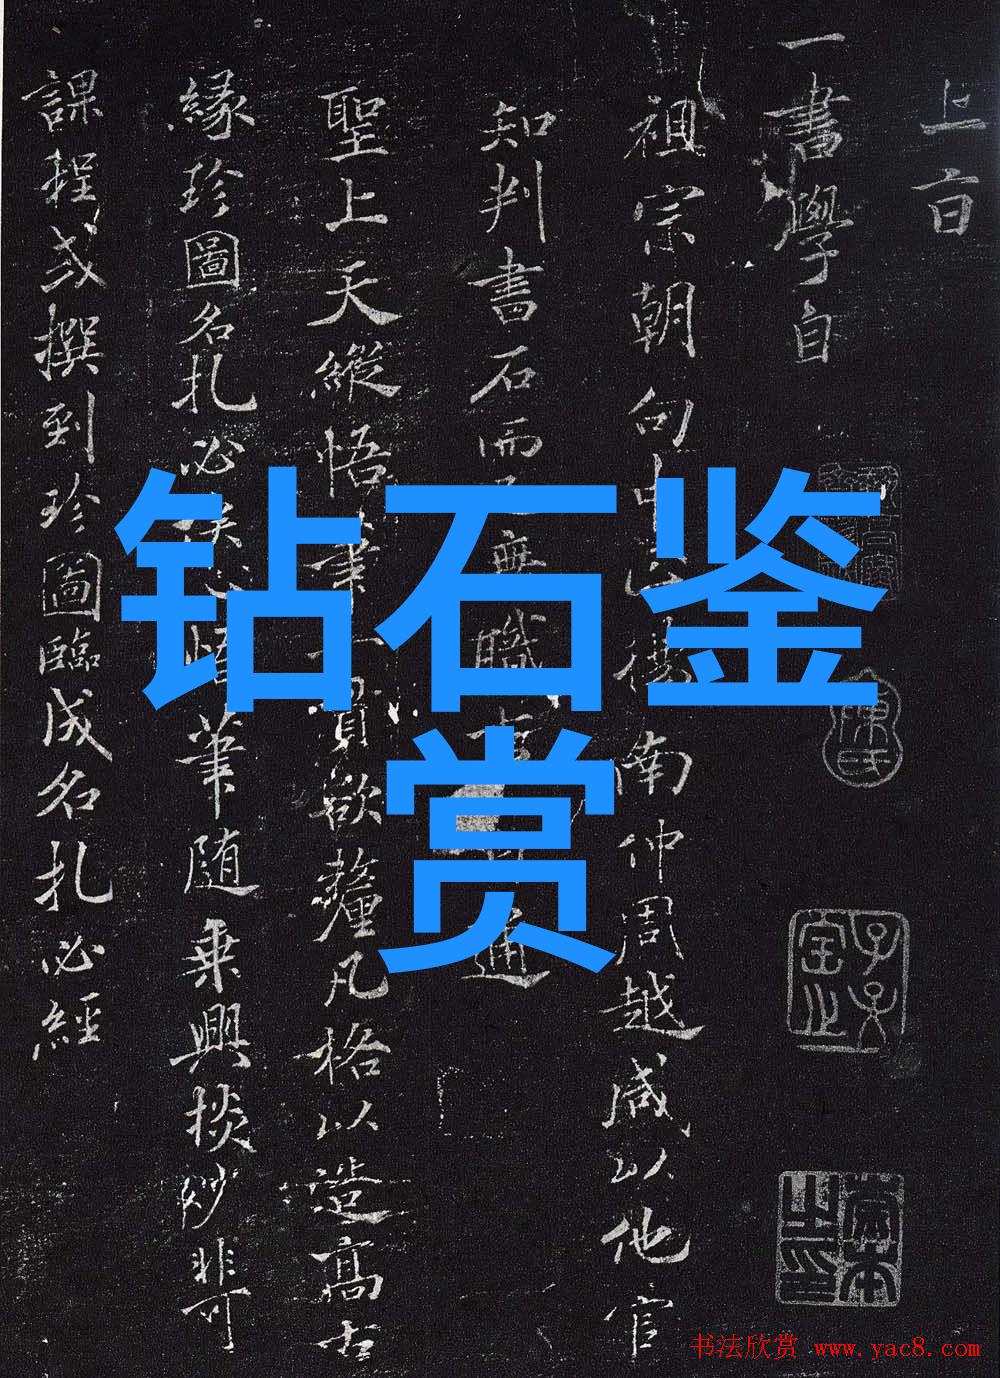 钻石鉴
赏
上
一書學自
祖宗朝句中楊南仲周越咸以他官
知判書石而無職通
聖上天縱悟一貫欲釐凡格以造高古
緣珍圖名札必悟筆隨乗興掞妙非可
課程或撰到珍圖臨成名札必經
书法欣赏 www.yac8.com